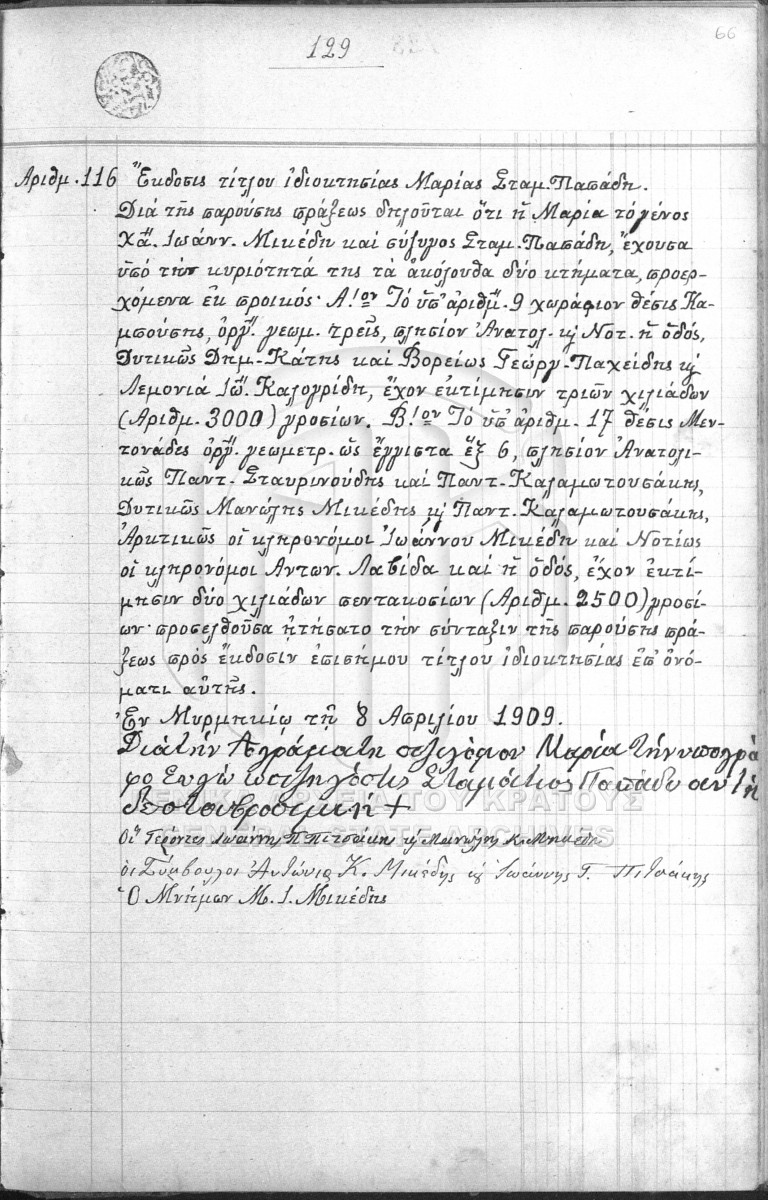 66
129
Αριθμ. 116 Ἔκδοσις τίτλου ἰδιοκτησίας Μαρίας Σταμ. Παπάδη.
Διά τῆς παρούσης πράξεως δηλοῦται ὅτι ἡ Μαρία τό γένος
Χἅ. Ἰωάνν. Μικέδη καί σύζυγος Σταμ. Παπάδη, ἔχουσα
ὑπό τήν κυριότητά της τά ἀκόλουθα δύο κτήματα, προερ-
χόμενα ἐκ προικός· Α!ον Τό ὑπ' ἀριθμ. 9 χωράφιον θέσις Κα-
μπούσης, ὀργ. γεωμ. τρεῖς, πλησίον Ἀνατολ. κ Νοτ. ἡ ὁδός,
Δυτικῶς Δημ. Κάτης καί Βορείως Γεώργ. Παχείδης κ
Λεμονιά Ἰω. Καλογρίδη, ἔχον ἐκτίμησιν τριῶν χιλιάδων
(Αριθμ. 3000) γροσίων. Β!ον Τό ὑπ' ἀριθμ. 17 θέσις Μεν-
τονάδες ὀργ. γεωμετρ. ὡς ἔγγιστα ἕξ 6, πλησίον Ἀνατολι-
κῶς Παντ. Σταυρινούδης καί Παντ. Καλαμωτουσάκης,
Δυτικῶς Μανώλης Μικέδης κ Παντ. Καλαμωτουσάκης,
Ἀρκτικῶς οἱ κληρονόμοι Ἰωάννου Μικέδη καί Νοτίως
οἱ κληρονόμοι Αντων. Λαβίδα καί ἡ ὁδός, ἔχον ἐκτί-
μησιν δύο χιλιάδων πεντακοσίων (Αριθμ. 2500) γροσί-
ων· προσελθοῦσα ᾐτήσατο τήν σύνταξιν τῆς παρούσης πρά-
ξεως πρός ἔκδοσιν ἐπισήμου τίτλου ἰδιοκτησίας ἐπ' ὀνό-
ματι αὐτῆς.
Ἐν Μυρμηκίῳ τῇ 8 Απριλίου 1909.
Διά τήν Μαρία τήν υπογρά
φο Εγώ Σταμάτιος Παπάδη αντή
+
Οἱ Γέροντες Ἰωάννης Π. Πιτσάκης κ Μανώλης Κ. Μικέδη
οἱ Σύμβουλοι Ἀντώνιος Κ. Μικέδης κ Ἰωάννης Γ. Πιτσάκης
Ὁ Μνήμων Μ. Ι. Μικέδης
ΓΕΝΙΚΑ ΑΡΧΕΙΑ ΤΟΥ ΚΡΑΤΟΥΣ
GENERAL STATE ARCHIVES